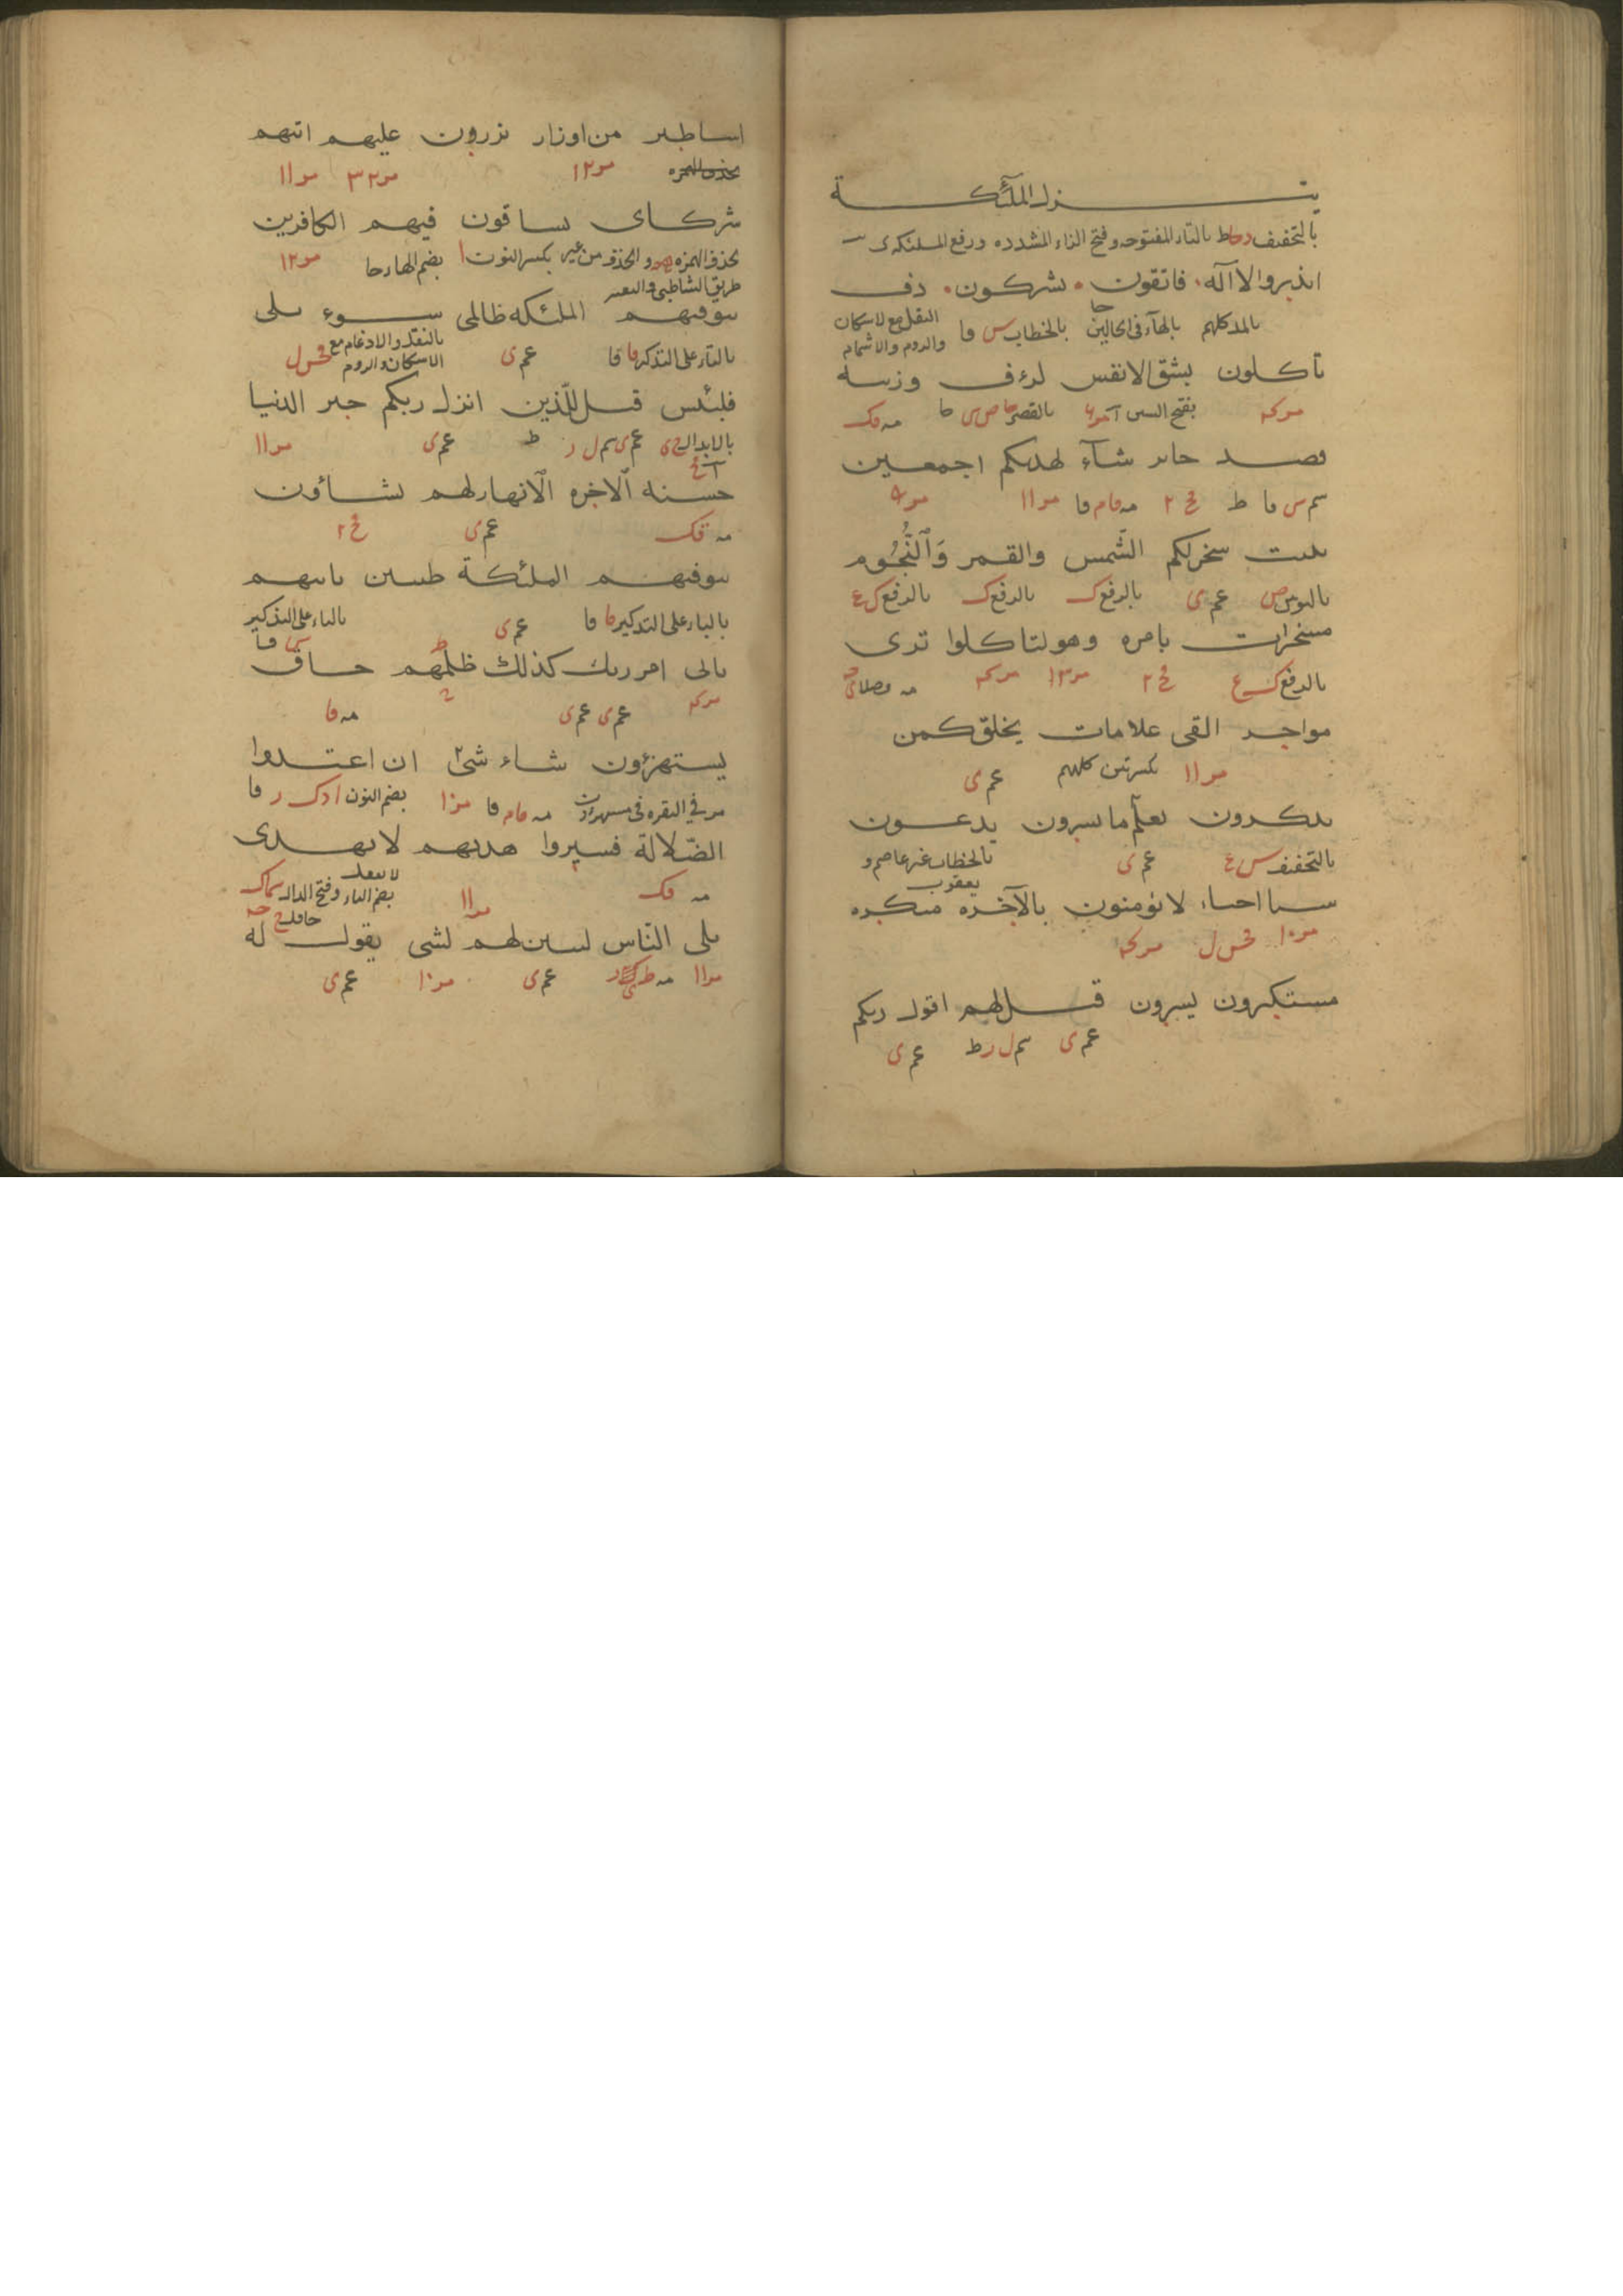 ينزل الملئكة
بالتخفيف بالتاء المفتوحه وفتح الزاء المشدده ورفع الملئكه ى
انذروا الا اله فاتقون يشركون دف
بالمد كلهم بالهاء فى الحالين بالخطاب س فا النقل مع الاسكان
والروم والاشمام
تاكلون بشق الانفس لرءف وزينه
مر كه بفتح السين بالقصر مه فك
قصد جائر شآء لهديكم اجمعين
سم س فا ط ٢ مه فام فا مر ١١ مر
ينبت سخرلكم الشمس والقمر وَٱلنُّجُوم
بالنون ص عم ى بالرفع ك بالرفع ك بالرفع ك ع
مسخرات بامره وهو لتاكلوا ترى
بالرفع ك ع ٢ مر ١٣ مر كه مه وصلا
مواخر القى علامات يخلق كمن
مر ١١ بكسرتين كلهم عم ى
تذكرون يعلم ما تسرون يدعون
بالتخفيف عم ى بالخطاب غير عاصم و
يعقوب
شيا احياء لا يؤمنون بالآخره منكره
مر ١٠ ل مر كه
مستكبرون يسرون قيل لهم اقول ربكم
عم ى سم ل ر ط عم ى
اساطير من اوزار يزرون عليهم اتيهم
بحذف الهمزه مر ١٢ مر ٣٢ مر ١١
شركاى تشاقون فيهم الكافرين
بحذف الهمزه والحذف من غير بكسر النون ا بضم الهاء حا مر ١٢
طريق الشاطبى والتيسير
تتوفيهم الملئكه ظالمى سوء بلى
بالتاء على التذكير فا فا عم ى بالنقل والادغام مع
الاسكان والروم
فلبئس قيل للّذين انزل ربكم خير الدنيا
بالابدال عم ى سم ل ر ط عم ى مر ١١
حسنه الاخره الانهار لهم يشاؤن
مه فك عم ى ٢
تتوفيهم الملئكة طيبين تاتيهم
بالياء على التذكير فا فا عم ى بالياء على التذكير
فا
ياتى امر ربك كذلك ظلمهم حاق
مر كه عم ى عم ى مه فا
يستهزؤن شاء شئ ان اعتدوا
مر فى البقره فى مستهزؤن مه فام فا مر ١٠ بضم النون ا د ك ر فا
الضّلالة فسيروا هديهم لا يهدى
مه فك مر ١١ بضم الياء وفتح الدال سماك
بلى النّاس ليبين لهم لشى يقول له
مر ١١ مه ط عم ى مر ١٠ عم ى